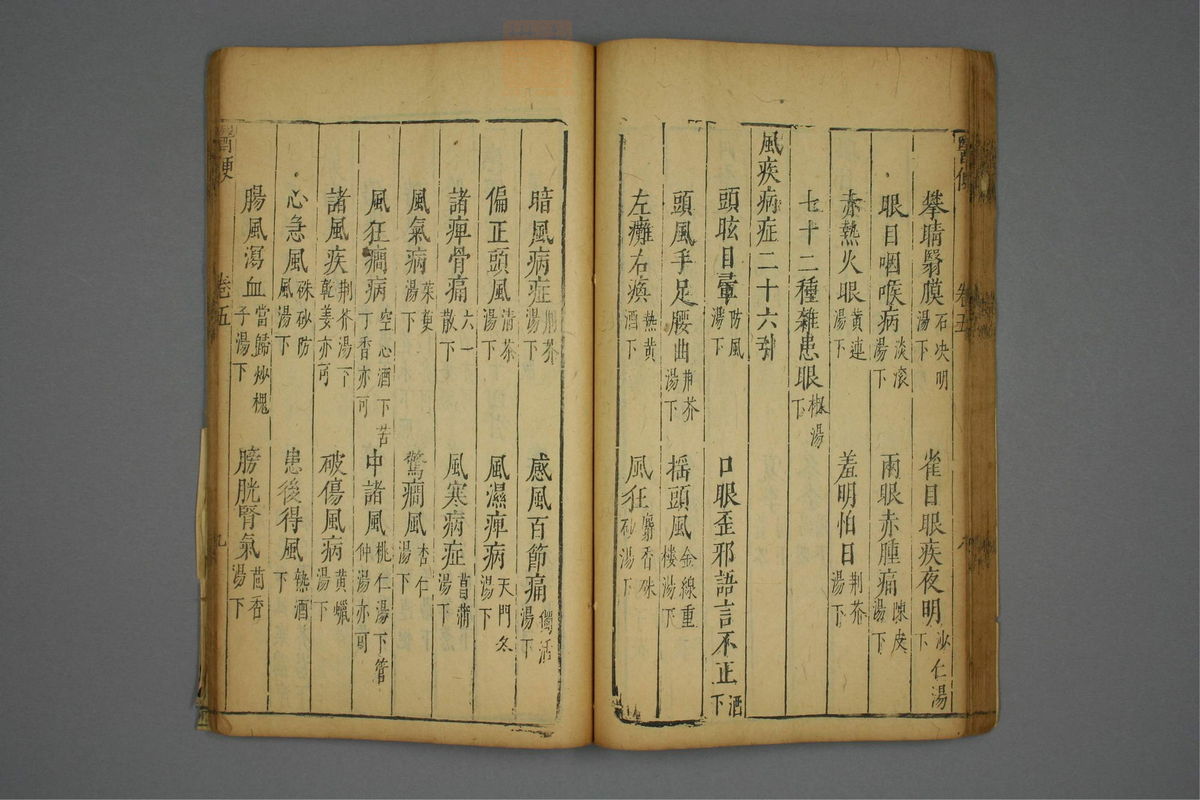 攀睛翳膜石决明湯下　雀目眼疾夜明沙仁湯下
眼目咽喉病淡滚湯下　兩眼赤腫痛陳皮湯下
赤熱火眼黄連湯下　羞明怕日荆芥湯下
七十二種雜患眼椒湯下
風疾病症二十六引
頭眩目暈防風湯下　口眼歪邪語言不正酒下
頭風手足腰曲荆芥湯下　揺頭風金線重楼湯下
左癱右瘓熱黄酒下　風狂麝香硃砂湯下
卷五
暗風病症荆芥湯下　感風百節痛獨活湯下
偏正頭風清茶湯下　風濕痺病天門冬湯下
諸痺骨痛六一散下　風寒病症菖蒲湯下
風氣病茱萸湯下　驚癇風杏仁湯下
風狂癇病空心酒下苦丁香亦可　中諸風桃仁湯下管仲湯亦可
諸風疾荆芥湯下乾姜亦可　破傷風病黄蠟湯下
心急風硃砂防風湯下　患後得風熱酒下
腸風瀉血當歸炒槐子湯下　膀胱腎氣茴香湯下
醫便　卷五　九